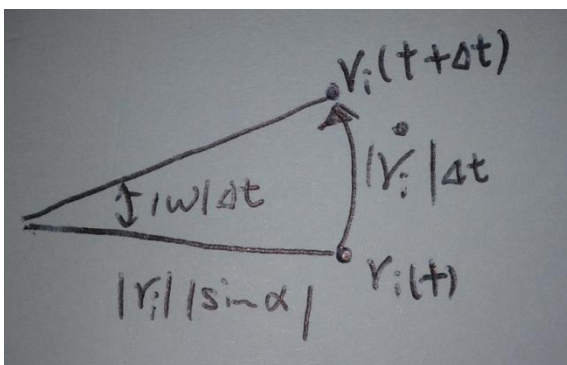 r_i(t+Δt)
|ṙ_i|Δt
|w|Δt
r_i(t)
|r_i||sinα|